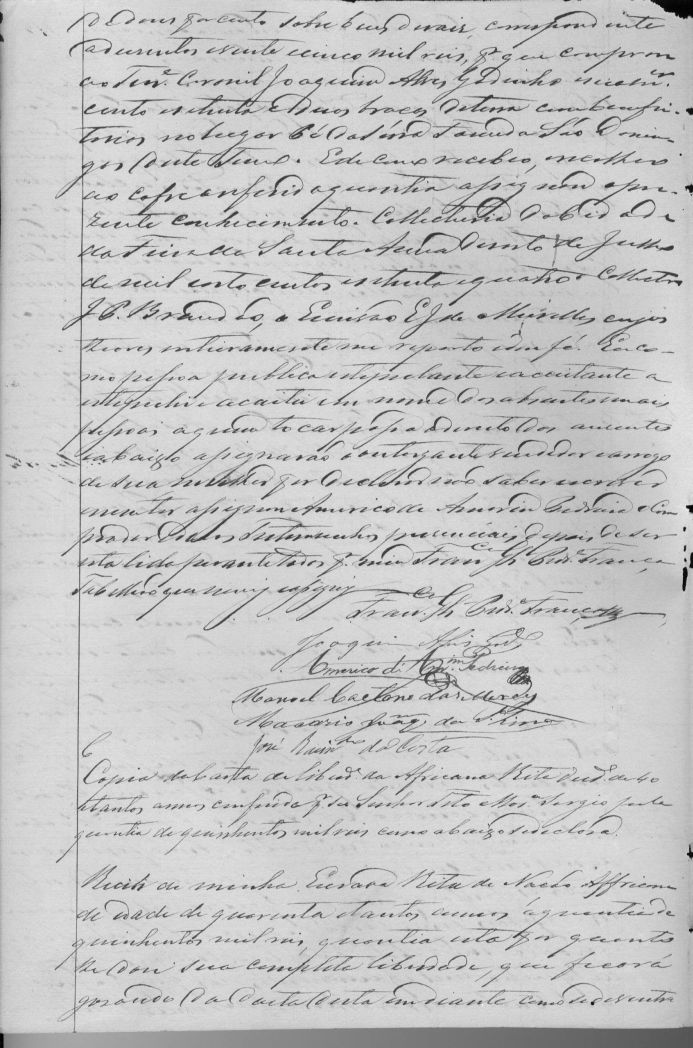 de dous por cento sobre bens de raiz, correspondente
a duzentos e vinte e cinco mil reis, pr. que comprou
ao Tene. Coronel Joaquim Alves Godinho
cento e setenta e duas braças de terra com bemfei-
torias no lugar Pé da Serra Fazenda São Domin-
gos deste Termo. E de como recebeo, e recolheo
ao cofre a referida quantia assignou o pre-
zente conhecimento. Collectoria da Cidade
da Feira de Santa Anna de Julho
de mil oito centos e setenta e quatro. O Colletor
J. P. Brandão, o Escrivão E. J. de Meirelles, cujos
theores inteiramente me reporto e dou fé. Eu co-
mo pessoa publica estipulante e aceitante a
estipulei e aceitei em nome dos absentes e mais
pessoas a quem tocar possa o direito dos auzentes
e abaixo assignarão o outorgante vendedor e a rogo
de sua mulher por declarar não saber ler e es-
crever assignou Americo de Amorim Pedreira o Com-
prador e as Testemunhas prezenciais, depois de ser
esta lida perante todos pr. mim Franco.
Tabellião que escrevi e assignei
Franco.
Joaquim
Americo de Amm. Pedreira
Manoel Caetano das Merces
Macario Joaqm. de S. Lima
José Raimdo. da Costa
Copia da Carta de liberde. da Africana Rita de ide. de 40
e tantos annos conferida pr. seu Senhor Tito Sergio pela
quantia de quinhentos mil reis como abaixo se declara.
Recebi de minha Escrava Rita de Nação Affricana
de idade de quarenta e tantos annos a quantia de
quinhentos mil reis, quantia esta por quanto
lhe dou sua completa liberdade, que ficará
gosando da dacta desta em diante como se de ventre